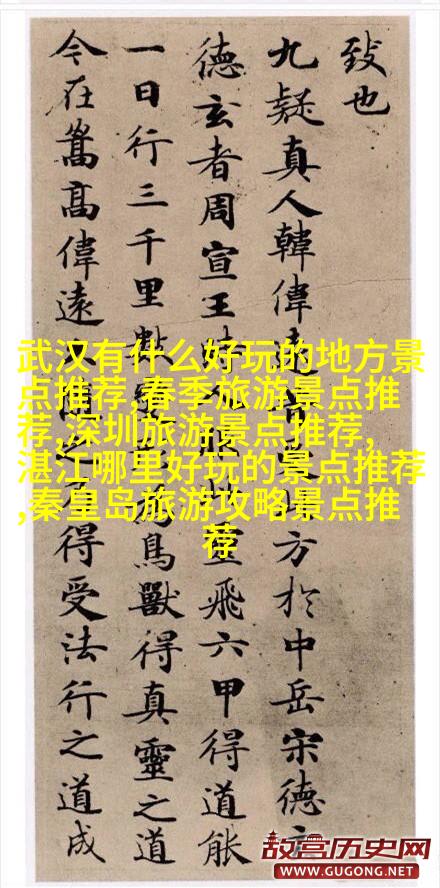 致也
九疑真人韓偉遠方於中岳宋德玄
德玄者周宣王時靈飛六甲得道能
一日行三千里數為鳥獸得真靈之道
今在嵩高偉遠得受法行之道成
武汉有什么好玩的地方景
点推荐,春季旅游景点推
荐,深圳旅游景点推荐,
湛江哪里好玩的景点推荐
,秦皇岛旅游攻略景点推
荐
故宫历史网
WWW.GUGONG.NET